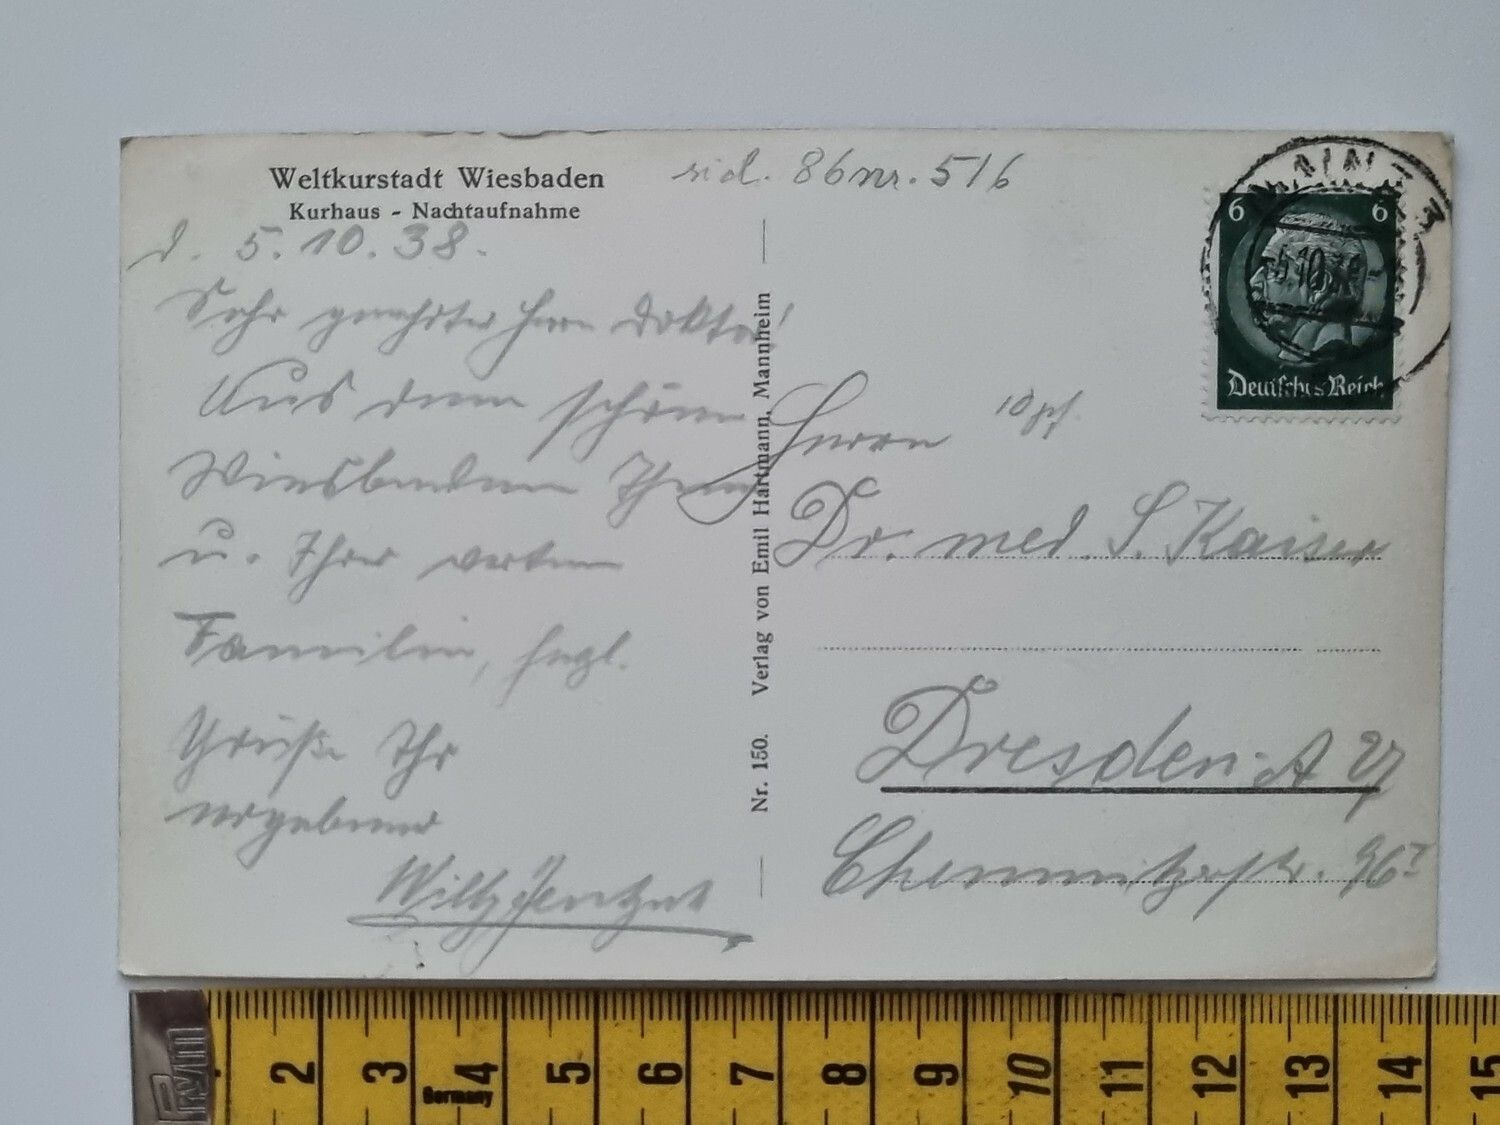 Weltkurstadt Wiesbaden
Kurhaus - Nachtaufnahme
d. 5.10.38.
Sehr geehrter Herr Doktor!
Aus dem schönen
Wiesbaden Ihnen
u. Ihrer werten
Familie, herzl.
Grüße Ihr
ergebener
Willy
Nr. 150. Verlag von Emil Hartmann, Mannheim
86 nr. 516
6 6
Deutsches Reich
5.10.38
3
10 pf.
Herrn
Dr. med. S. Kaiser
Dresden-A 27
Chemnitzerstr. 96
Prym
2 3 4 5 6 7 8 9 10 11 12 13 14 15
Germany